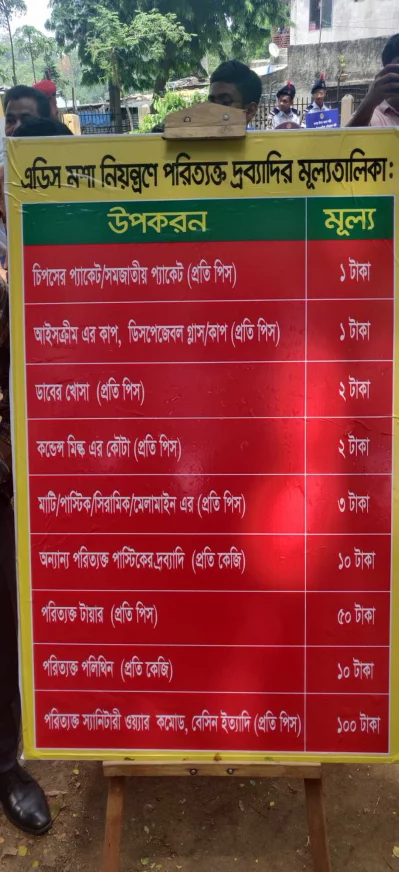 এডিস মশা নিয়ন্ত্রণে পরিত্যক্ত দ্রব্যাদির মূল্যতালিকা:
উপকরন মূল্য
চিপসের প্যাকেট/সমজাতীয় প্যাকেট (প্রতি পিস) ১ টাকা
আইসক্রীম এর কাপ, ডিসপেজেবল গ্লাস/কাপ (প্রতি পিস) ১ টাকা
ডাবের খোসা (প্রতি পিস) ২ টাকা
কন্ডেন্স মিল্ক এর কৌটা (প্রতি পিস) ২ টাকা
মাটি/পাস্টিক/সিরামিক/মেলামাইন এর (প্রতি পিস) ৩ টাকা
অন্যান্য পরিত্যক্ত পাস্টিকের দ্রব্যাদি (প্রতি কেজি) ১০ টাকা
পরিত্যক্ত টায়ার (প্রতি পিস) ৫০ টাকা
পরিত্যক্ত পলিথিন (প্রতি কেজি) ১০ টাকা
পরিত্যক্ত স্যানিটারী ওয়্যার কমোড, বেসিন ইত্যাদি (প্রতি পিস) ১০০ টাকা